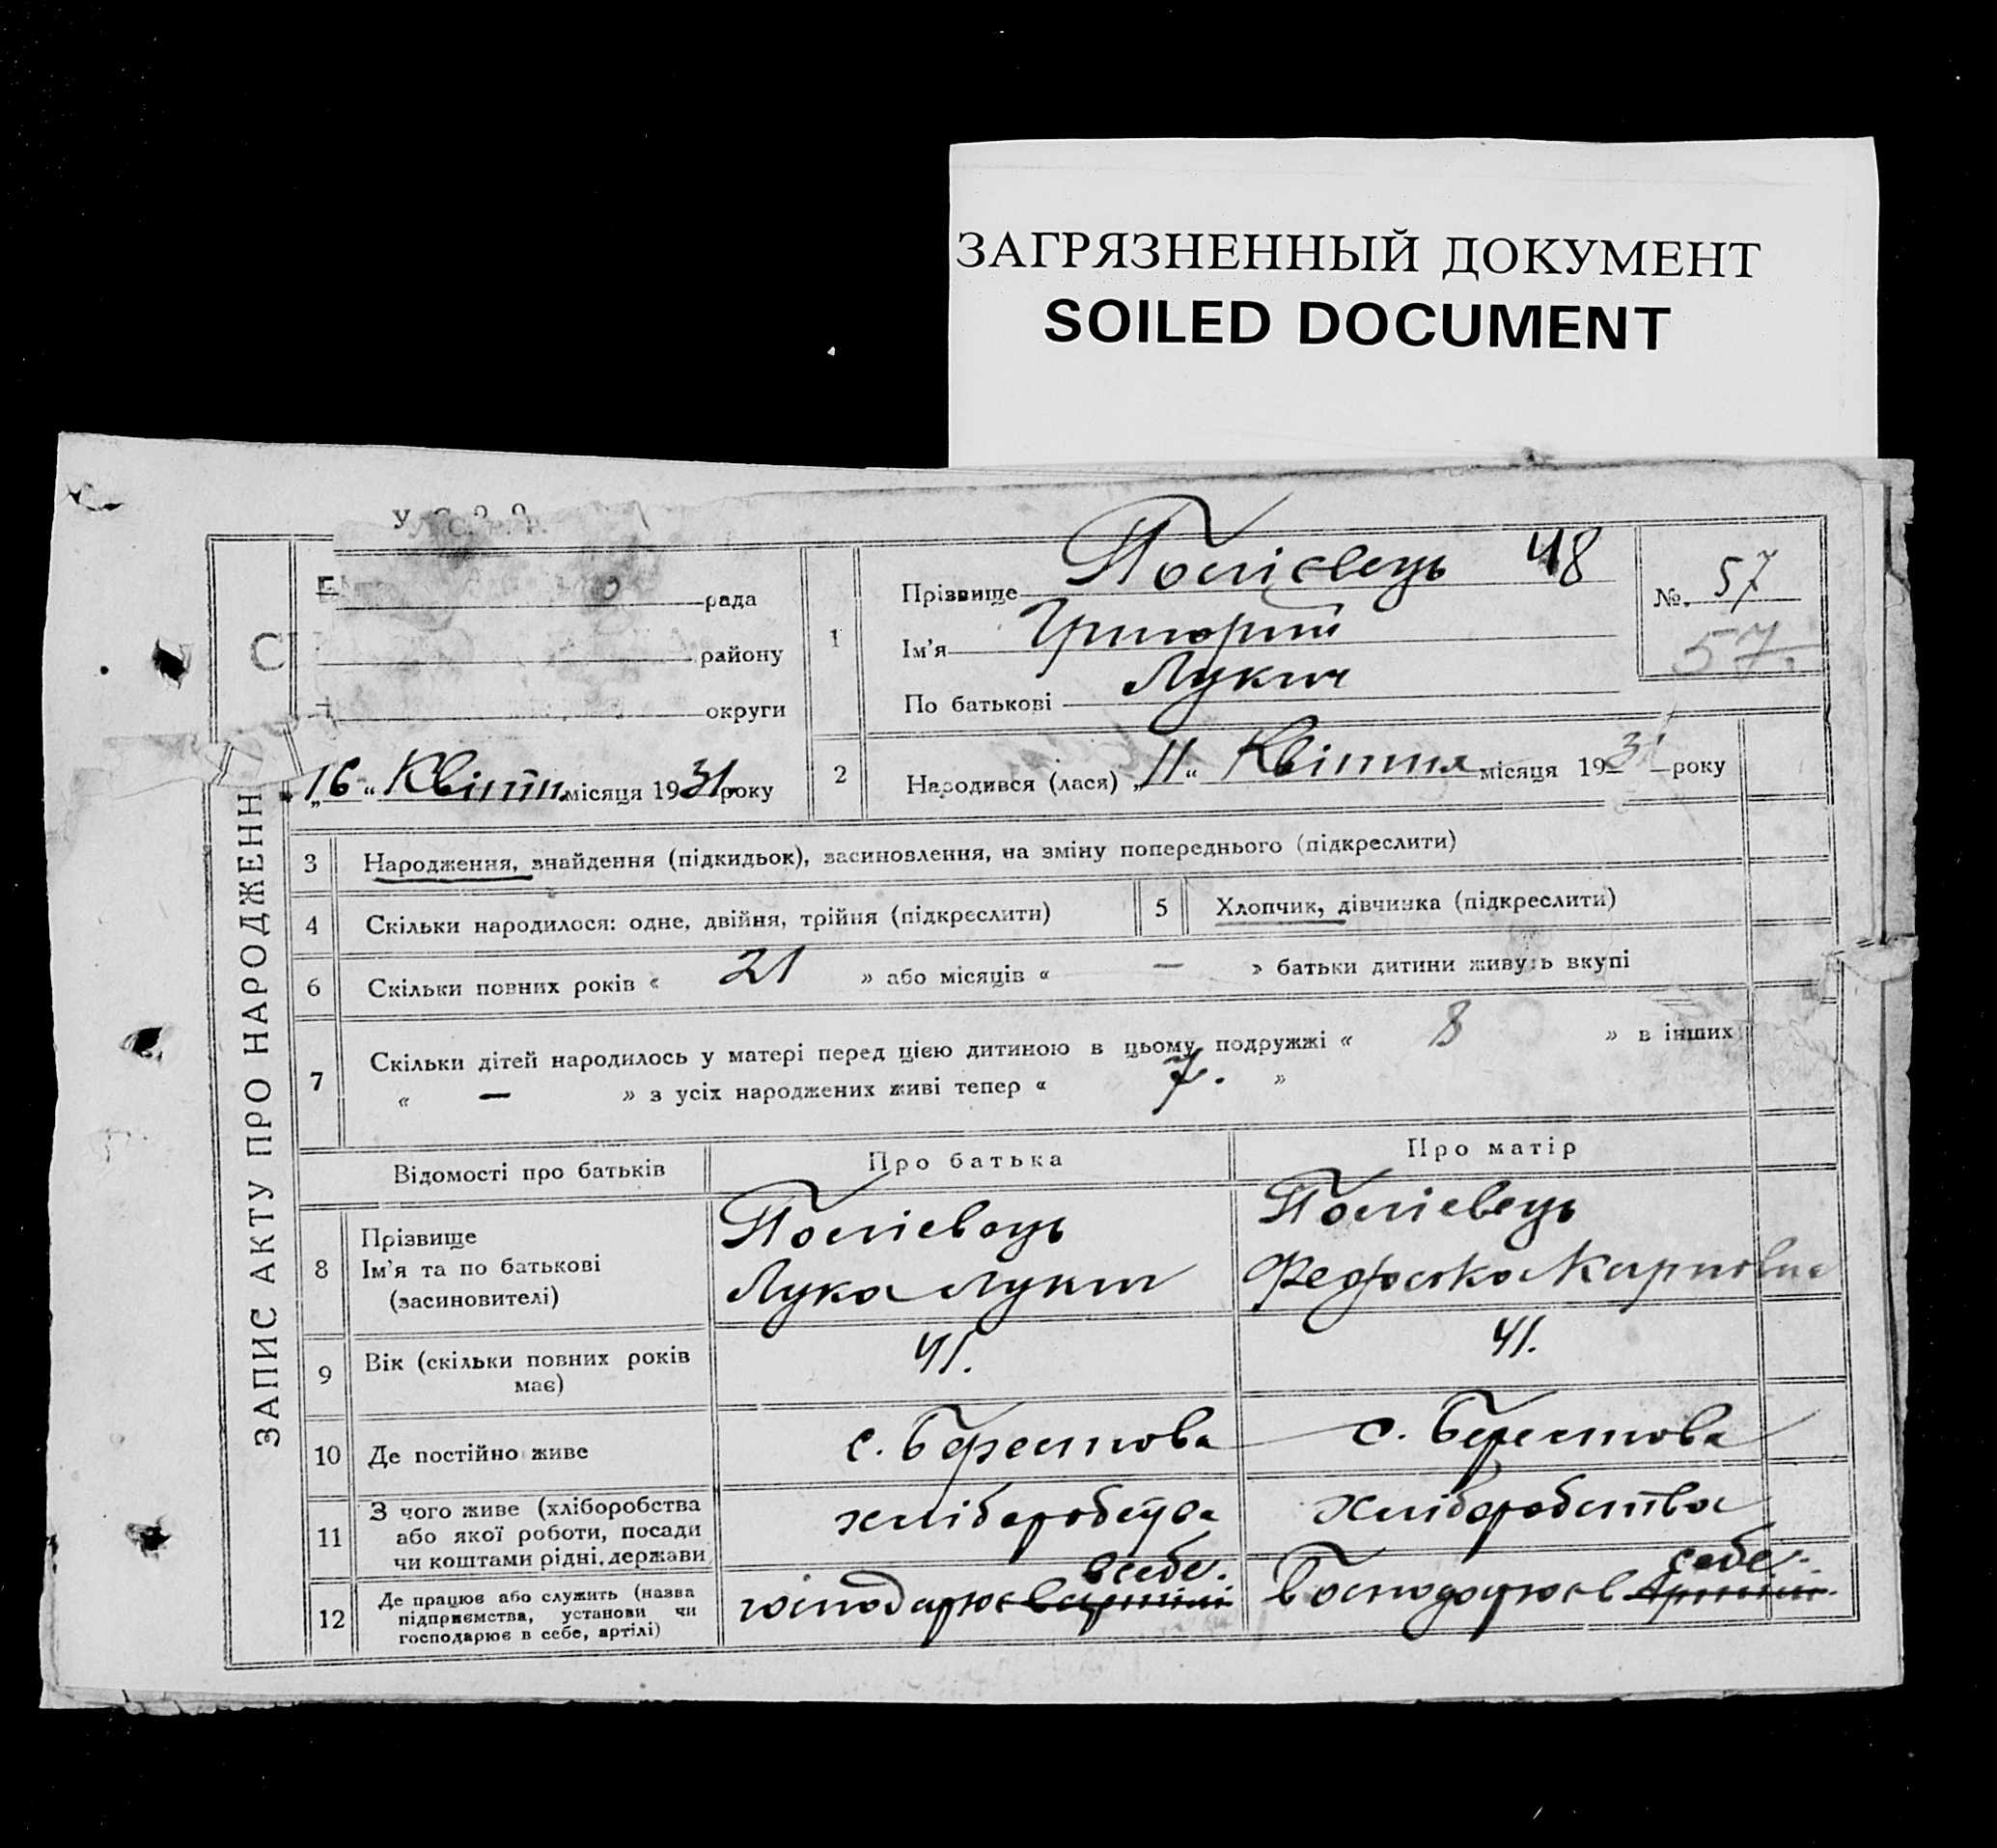 ЗАГРЯЗНЕННЫЙ ДОКУМЕНТ
SOILED DOCUMENT
ЗАПИС АКТУ ПРО НАРОДЖЕНН
рада
району
округи
„16“ Квітня місяця 1931 року
1
Прізвище Полієвець 48
Ім'я Григорій
По батькові Лукич
№. 57
57.
2
Народився (лася) „11“ Квітня місяця 1931 року
3 Народження, знайдення (підкидьок), засиновлення, на зміну попереднього (підкреслити)
4 Скільки народилося: одне, двійня, трійня (підкреслити)
5 Хлопчик, дівчинка (підкреслити)
6 Скільки повних років « 21 » або місяців « — » батьки дитини живуть вкупі
7 Скільки дітей народилось у матері перед цією дитиною в цьому подружжі « 8 » в інших
« — » з усіх народжених живі тепер « 7. »
Відомості про батьків Про батька Про матір
8 Прізвище
Ім'я та по батькові
(засиновителі)
Полієвець
Лука Лукич
Полієвець
Федоська Карповна
9 Вік (скільки повних років
має)
41. 41.
10 Де постійно живе с. Берестова с. Берестова
11 З чого живе (хліборобства
або якої роботи, посади
чи коштами рідні, держави
хліборобства хліборобства
12 Де працює або служить (назва
підприємства, установи чи
господарює в себе, артілі)
всебе.
господарює вартілі
себе.
Господарює в Артілі